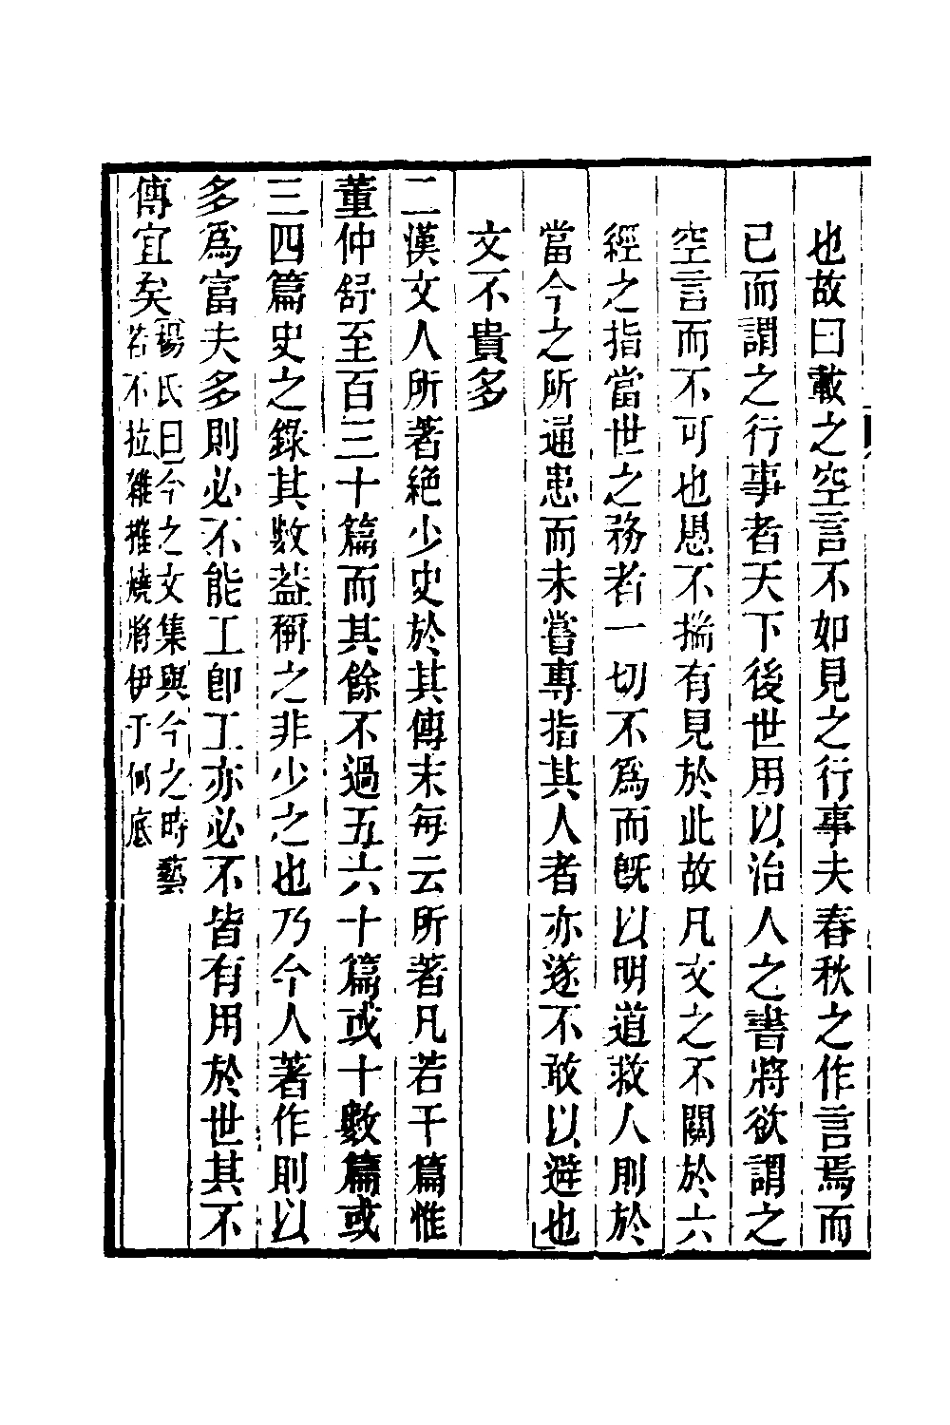 也故曰載之空言不如見之行事夫春秋之作言焉而
已而謂之行事者天下後世用以治人之書將欲謂之
空言而不可也愚不揣有見於此故凡文之不關於六
經之指當世之務者一切不爲而旣以明道救人則於
當今之所通患而未嘗專指其人者亦遂不敢以避也
文不貴多
二漢文人所著絕少史於其傳末每云所著凡若干篇惟
董仲舒至百三十篇而其餘不過五六十篇或十數篇或
三四篇史之錄其數葢稱之非少之也乃今人著作則以
多爲富夫多則必不能工卽工亦必不皆有用於世其不
傳宜矣
楊氏曰今之文集與今之時藝
若不拉雜摧燒將伊于何底